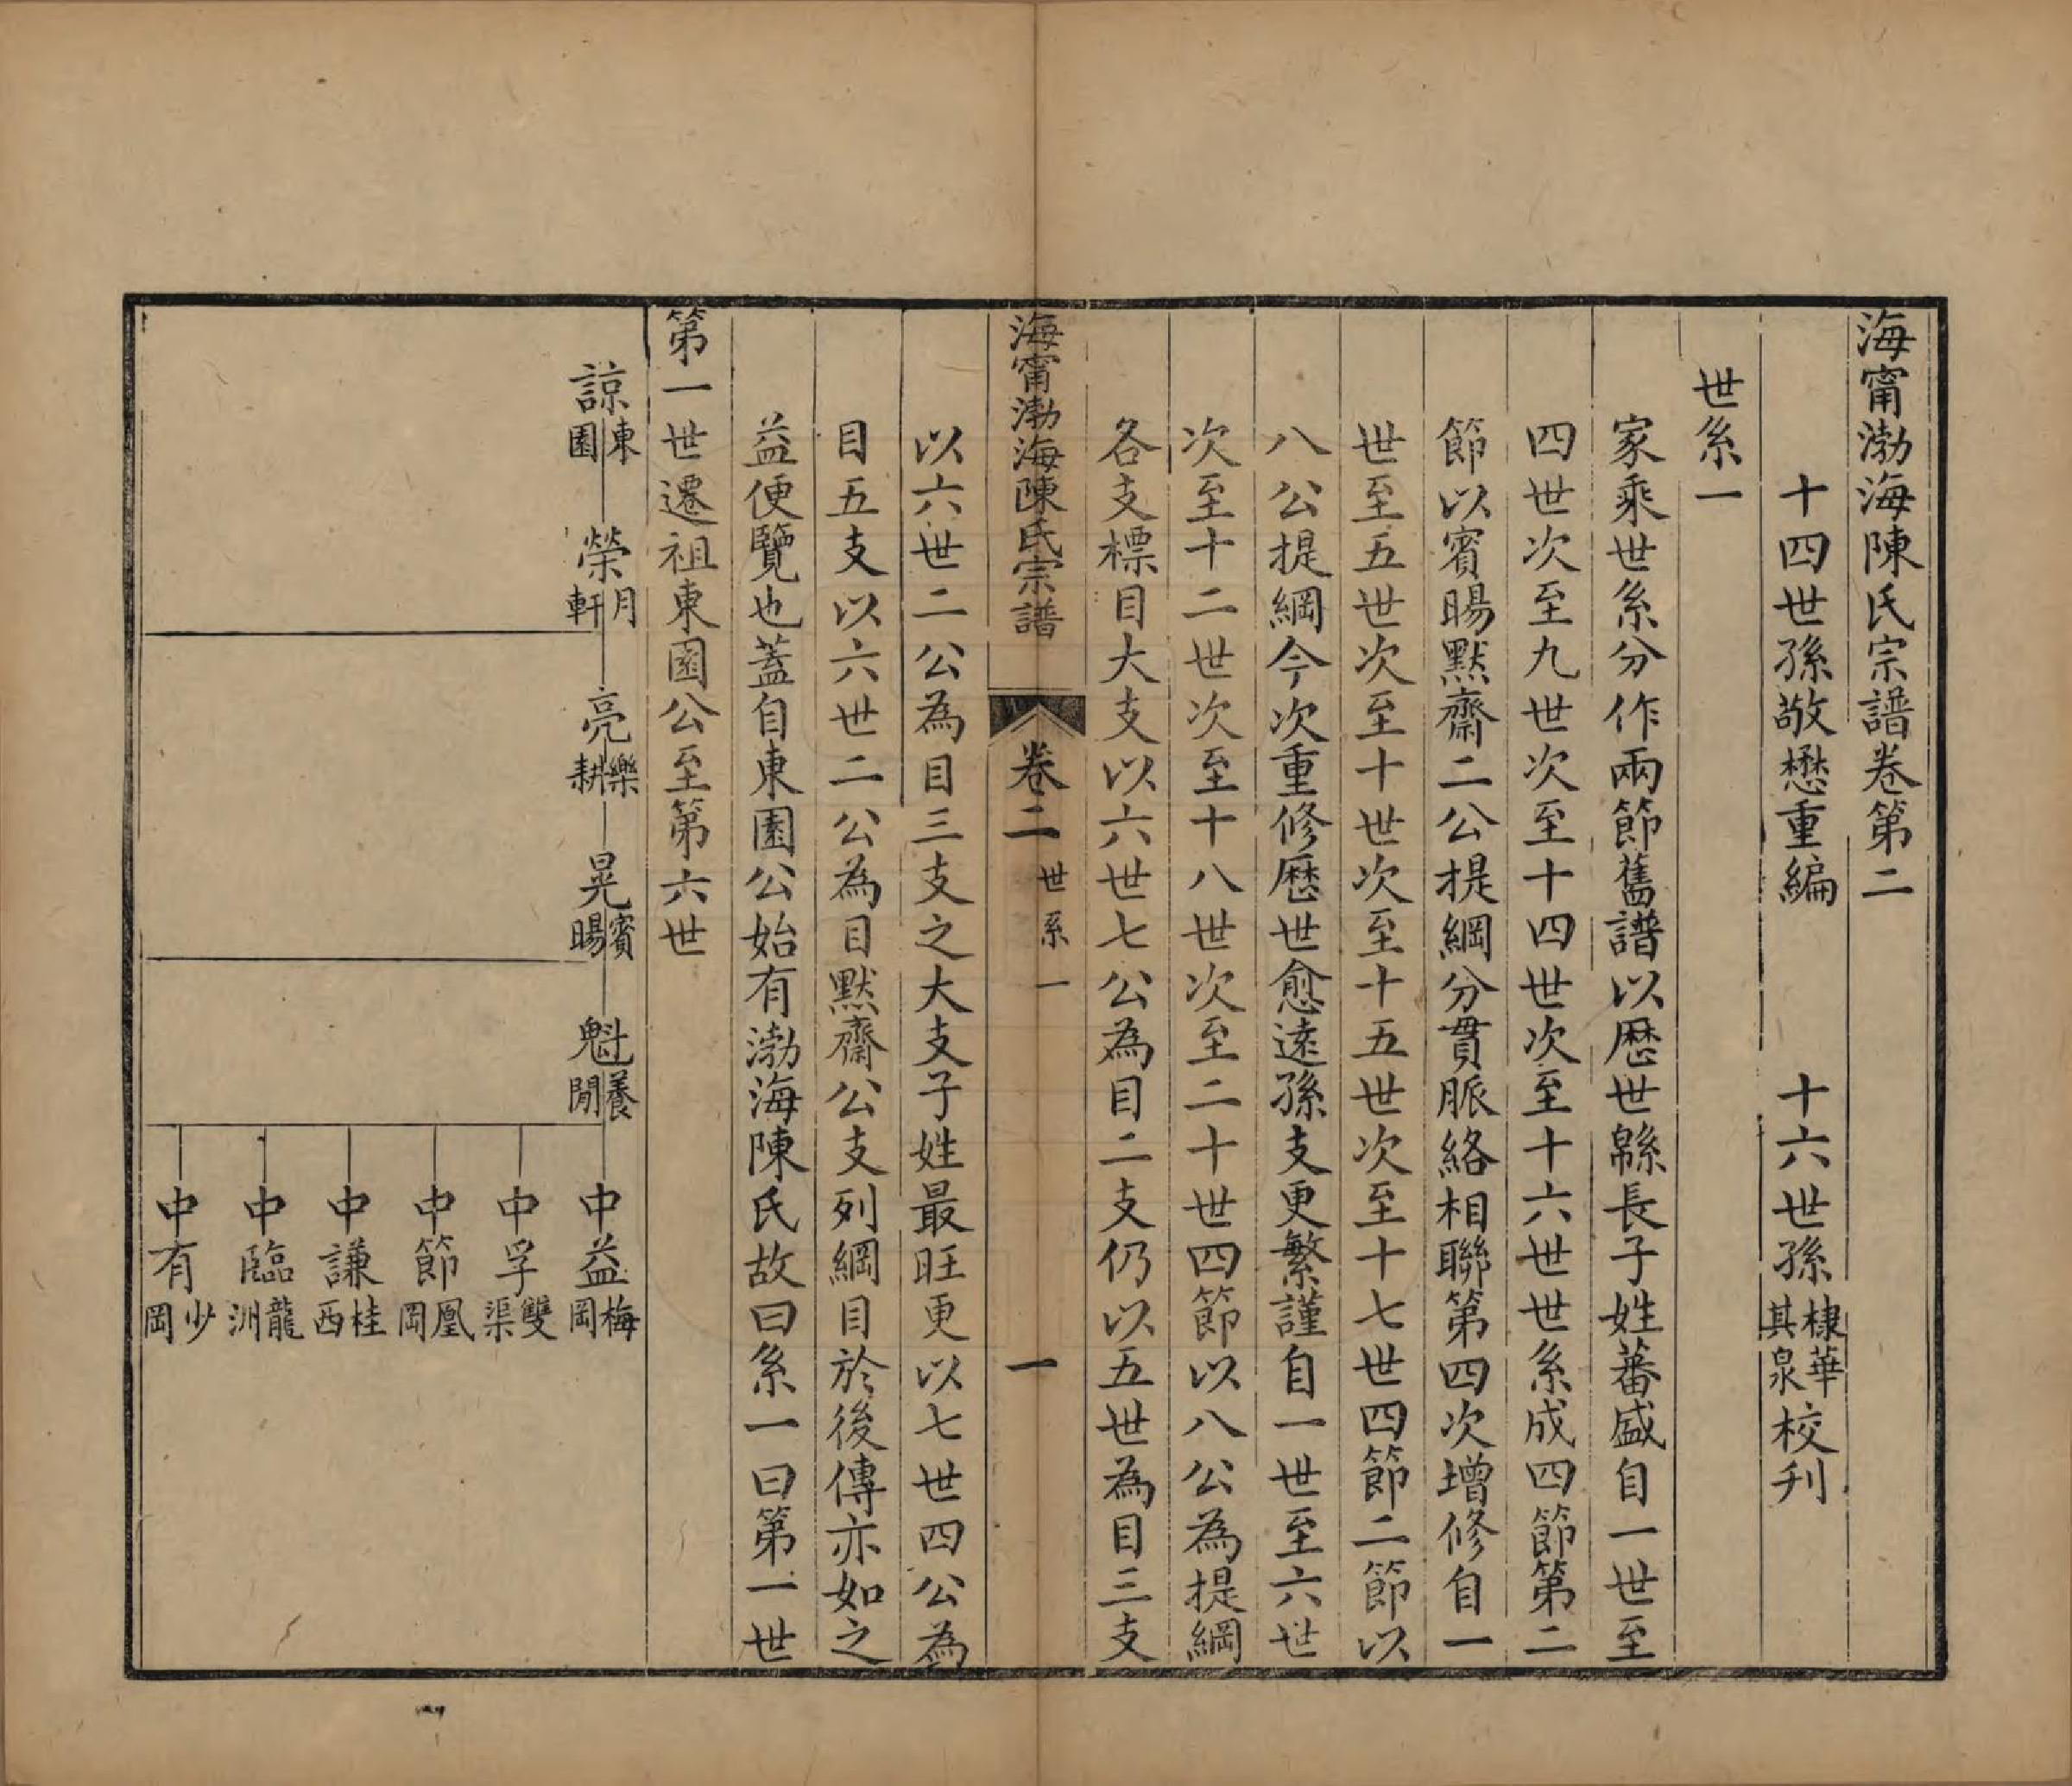 海甯渤海陳氏宗譜卷第二
十四世孫敬懋重編　十六世孫棣華其泉校刋
世系一
家乘世系分作兩節舊譜以歷世緜長子姓蕃盛自一世至
四世次至九世次至十四世次至十六世世系成四節第二
節以賓暘默齋二公提綱分貫脈絡相聯第四次增修自一
世至五世次至十世次至十五世次至十七世四節二節以
八公提綱今次重修歷世愈遠孫支更繁謹自一世至六世
次至十二世次至十八世次至二十世四節以八公為提綱
各支標目大支以六世七公為目二支仍以五世為目三支
海甯渤海陳氏宗譜　卷二　世系一　一
以六世二公為目三支之大支子姓最旺更以七世四公為
目五支以六世二公為目默齋公支列綱目於後傳亦如之
益便覽也蓋自東園公始有渤海陳氏故曰系一曰第一世
第一世遷祖東園公至第六世
諒東園　榮月軒　亮樂耕　晃賓暘　魁養閒　中益梅岡
中孚雙渠
中節凰岡
中謙桂西
中臨龍洲
中有少岡